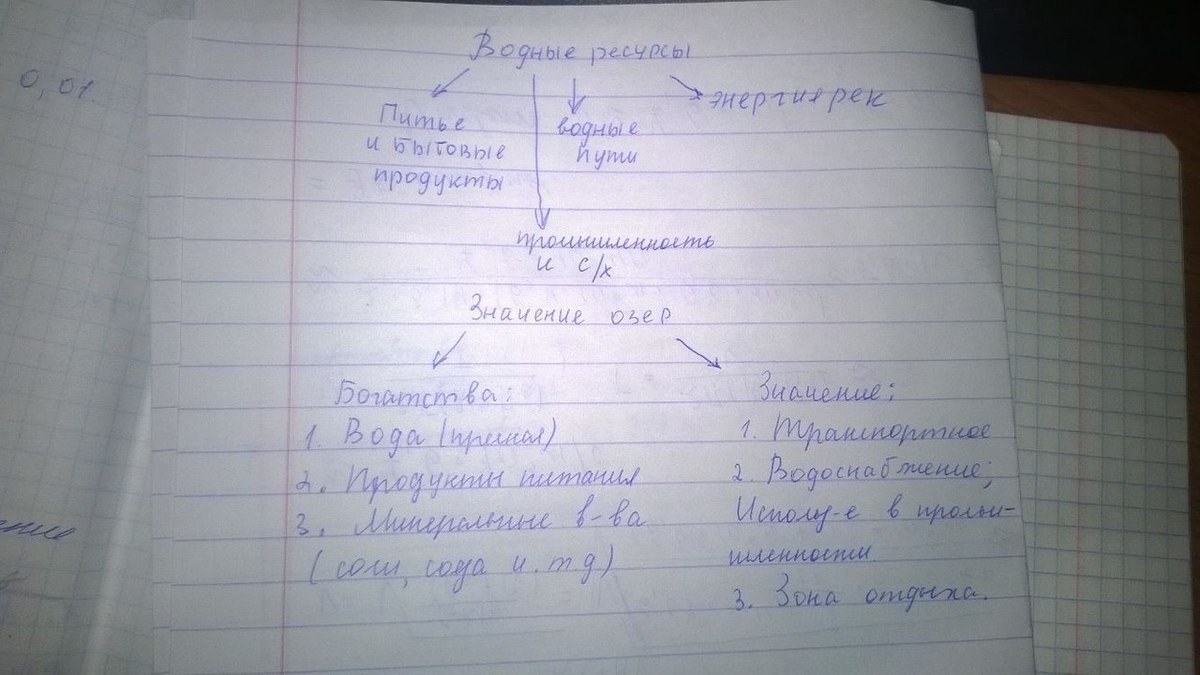 0,01
Водные ресурсы
энергия рек
Питье
и бытовые
продукты
водные
пути
промышленность
и с/х
Значение озер
Богатства:
1. Вода (пресная)
2. Продукты питания
3. Минеральные в-ва
(соли, сода и.т.д)
Значение:
1. Транспортное
2. Водоснабжение;
Использ-е в промы-
шленности
3. Зона отдыха.